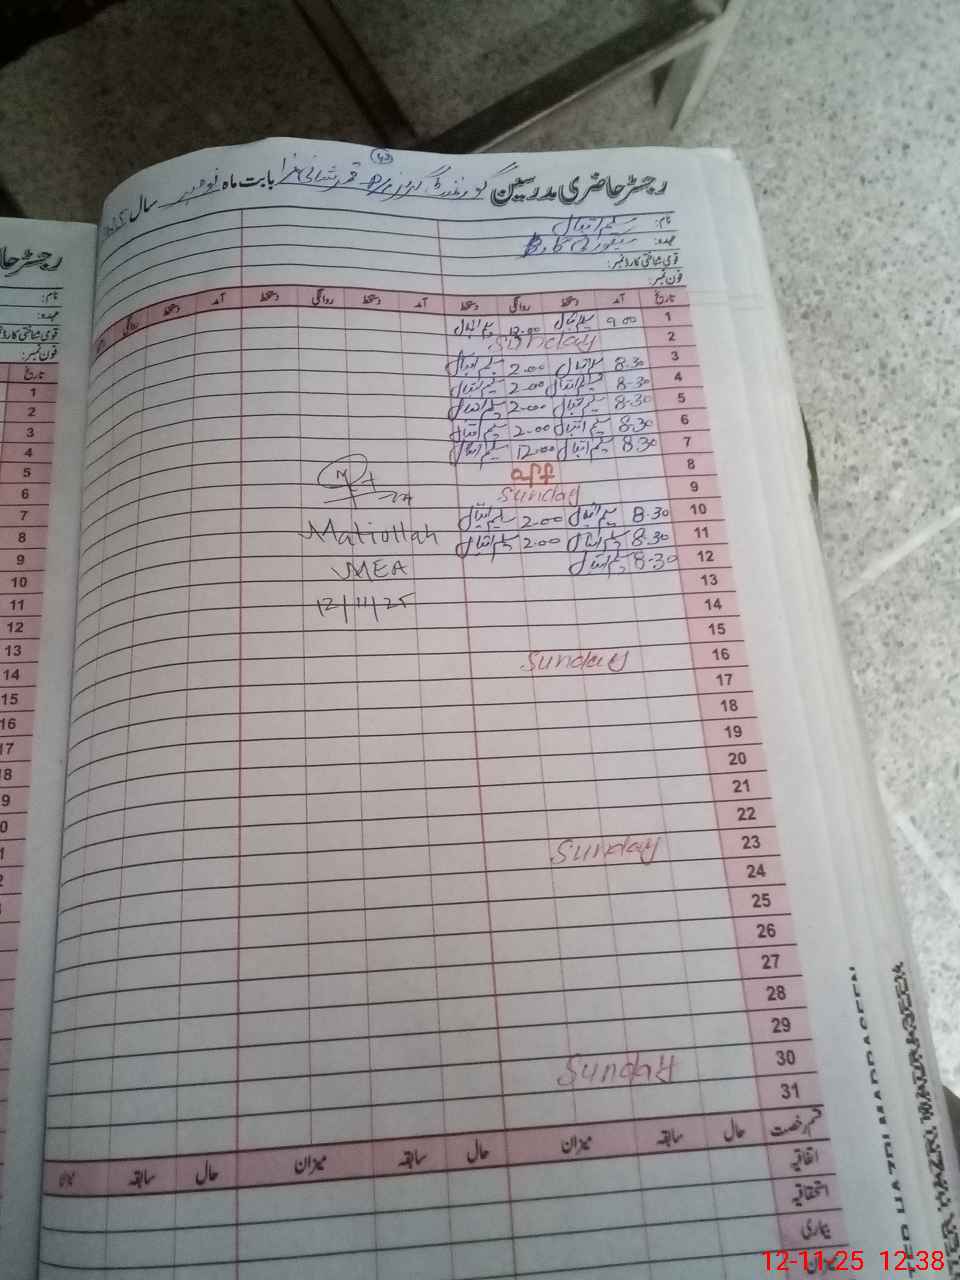 رجسٹر حاضری مدرسین گورنمنٹ بابت ماہ نومبر سال
نام: سلیم اقبال
عہدہ: سیکورٹی گارڈ
قومی شناختی کارڈ نمبر:
فون نمبر:
تاریخ آمد دستخط روانگی دستخط آمد دستخط روانگی دستخط آمد دستخط روانگی
1 9.00 سلیم اقبال 12.00 سلیم اقبال
2 Sunday
3 8.30 سلیم اقبال 2.00 سلیم اقبال
4 8.30 سلیم اقبال 2.00 سلیم اقبال
5 8.30 سلیم اقبال 2.00 سلیم اقبال
6 8.30 سلیم اقبال 2.00 سلیم اقبال
7 8.30 سلیم اقبال 12.00 سلیم اقبال
8 off
9 Sunday
10 8.30 سلیم اقبال 2.00 سلیم اقبال
11 8.30 سلیم اقبال 2.00 سلیم اقبال
12 8.30 سلیم اقبال
13
14
15
16 Sunday
17
18
19
20
21
22
23 Sunday
24
25
26
27
28
29
30 Sunday
31
Matiullah
MEA
12/11/25
قسم رخصت حال سابقہ میزان حال سابقہ میزان حال سابقہ میزان
اتفاقیہ
استحقاقیہ
بیماری
میزان
رجسٹر
نام:
عہدہ:
قومی شناختی کارڈ
فون نمبر:
تاریخ
1
2
3
4
5
6
7
8
9
10
11
12
13
14
15
16
12-11-25 12:38